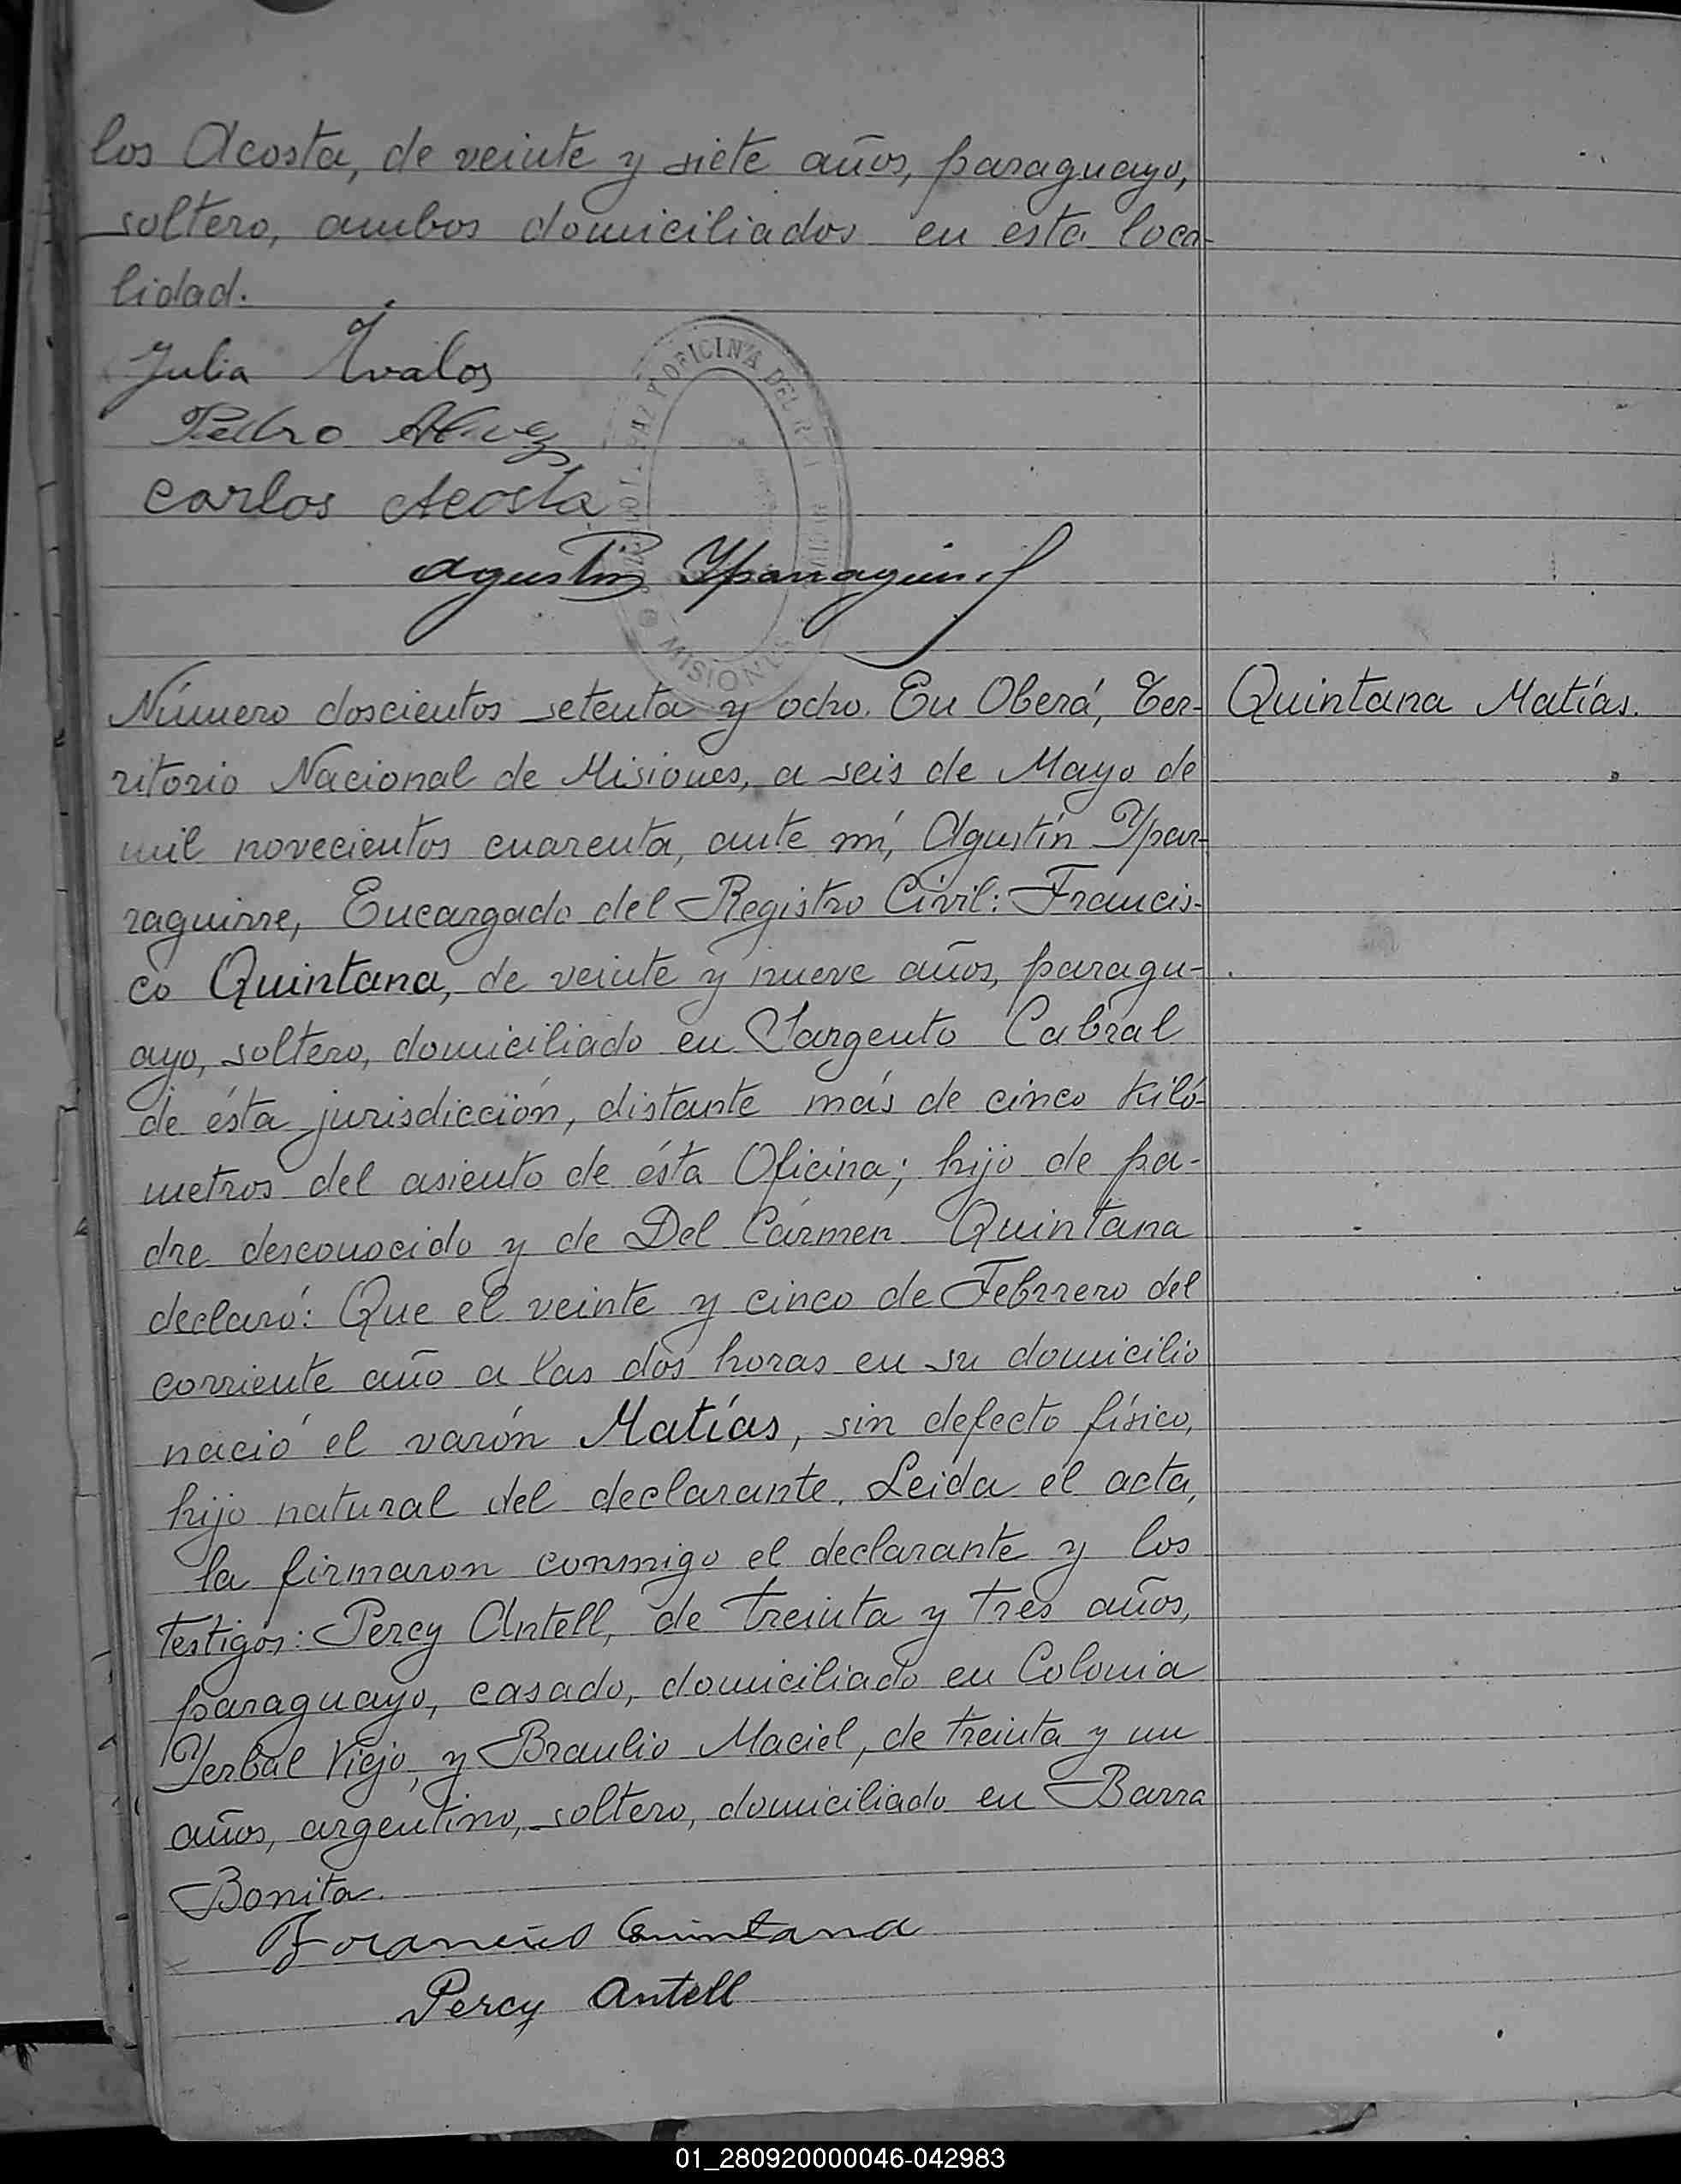 los Acosta, de veinte y siete años, paraguayo,
soltero, ambos domiciliados en esta loca-
lidad.
Julia Avalos
Pedro Alvez
Carlos Acosta
OFICINA DEL R
MISIONES
Agustín Yparraguirre
Número doscientos setenta y ocho. En Oberá, Ter-
Quintana Matías.
ritorio Nacional de Misiones, a seis de Mayo de
mil novecientos cuarenta, ante mí, Agustín Ypar-
raguirre, Encargado del Registro Civil: Francis-
co Quintana, de veinte y nueve años, paragu-
ayo, soltero, domiciliado en Sargento Cabral
de ésta jurisdicción, distante más de cinco kiló-
metros del asiento de ésta Oficina; hijo de pa-
dre desconocido y de Del Cármen Quintana
declaró: Que el veinte y cinco de Febrrero del
corriente año a las dos horas en su domicilio
nació el varón Matías, sin defecto físico,
hijo natural del declarante. Leida el acta,
la firmaron conmigo el declarante y los
testigos: Percy Antell, de treinta y tres años,
paraguayo, casado, domiciliado en Colonia
Yerbal Viejo, y Braulio Maciel, de treinta y un
años, argentino, soltero, domiciliado en Barra
Bonita.
Francisco Quintana
Percy Antell
01_280920000046-042983